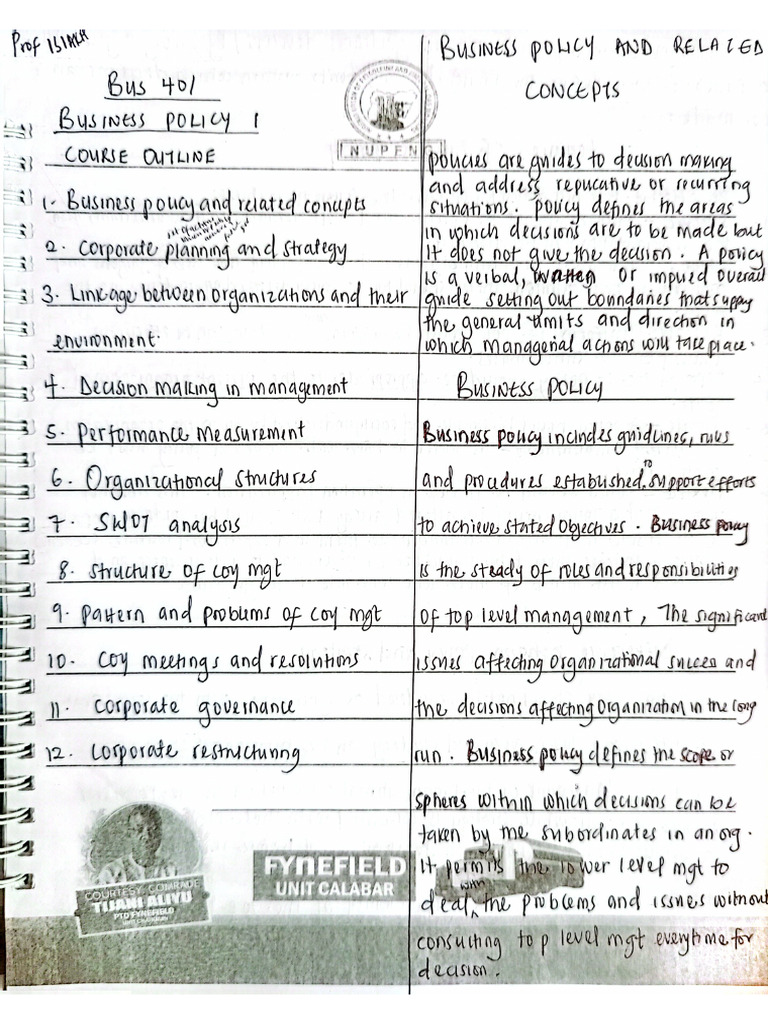 Prof
BUS 401
BUSINESS POLICY 1
COURSE OUTLINE
1. Business policy and related concepts
2. Corporate planning and strategy
3. Linkage between organizations and their
environment.
4. Decision making in management
5. Performance Measurement
6. Organizational structures
7. SWOT analysis
8. Structure of coy mgt
9. Pattern and problems of coy mgt
10. Coy meetings and resolutions
11. Corporate governance
12. Corporate restructuring
NUPENG
COURTESY: COMRADE
TIJANI ALIYU
PTD FYNEFIELD
FYNEFIELD
UNIT CALABAR
BUSINESS POLICY AND RELATED
CONCEPTS
policies are guides to decision making
and address repucative or recurring
situations. policy defines the areas
in which decisions are to be made but
it does not give the decision. A policy
is a verbal, written or implied overall
guide setting out boundaries that supply
the general limits and direction in
which managerial actions will take place.
BUSINESS POLICY
Business policy includes guidlines, rules
and procedures established to support efforts
to achieve stated objectives. Business policy
is the steady of roles and responsibilities
of top level management, The significant
issues affecting organizational success and
the decisions affecting organization in the long
run. Business policy defines the scope or
spheres within which decisions can be
taken by the subordinates in an org.
it permits the lower level mgt to
deal with the problems and issues without
consulting top level mgt everytime for
decision.